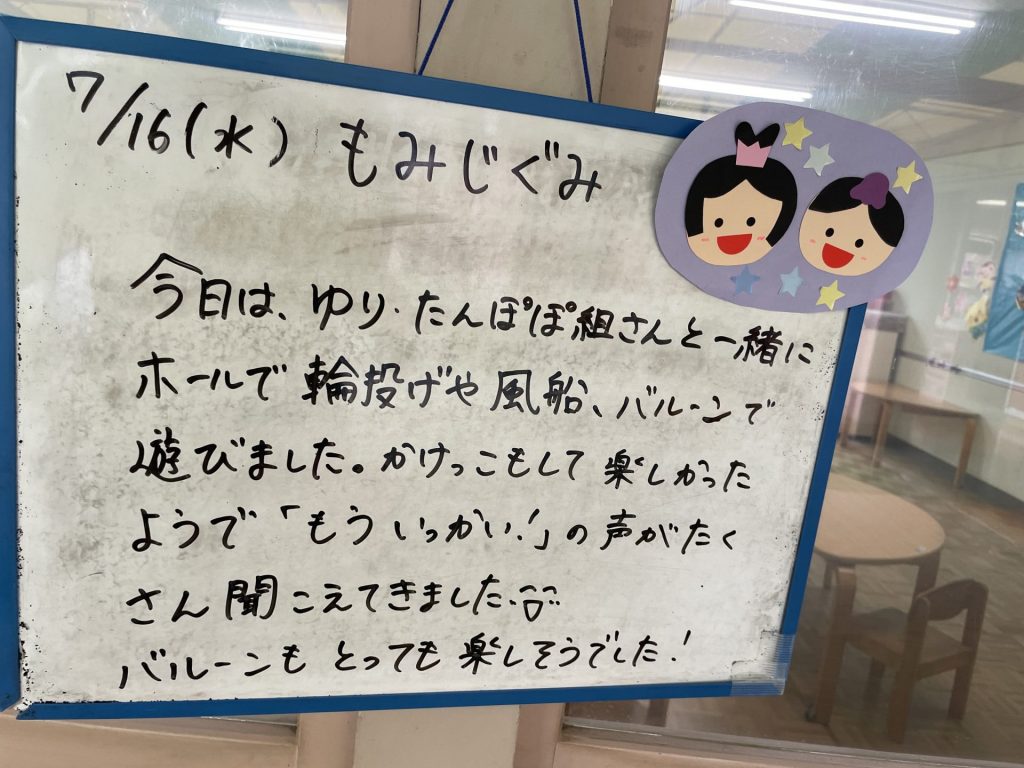 7/16(水) もみじぐみ
今日は、ゆり・たんぽぽ組さんと一緒に
ホールで輪投げや風船、バルーンで
遊びました。かけっこもして楽しかった
ようで「もういっかい!」の声がたく
さん聞こえてきました
バルーンもとっても楽しそうでした!